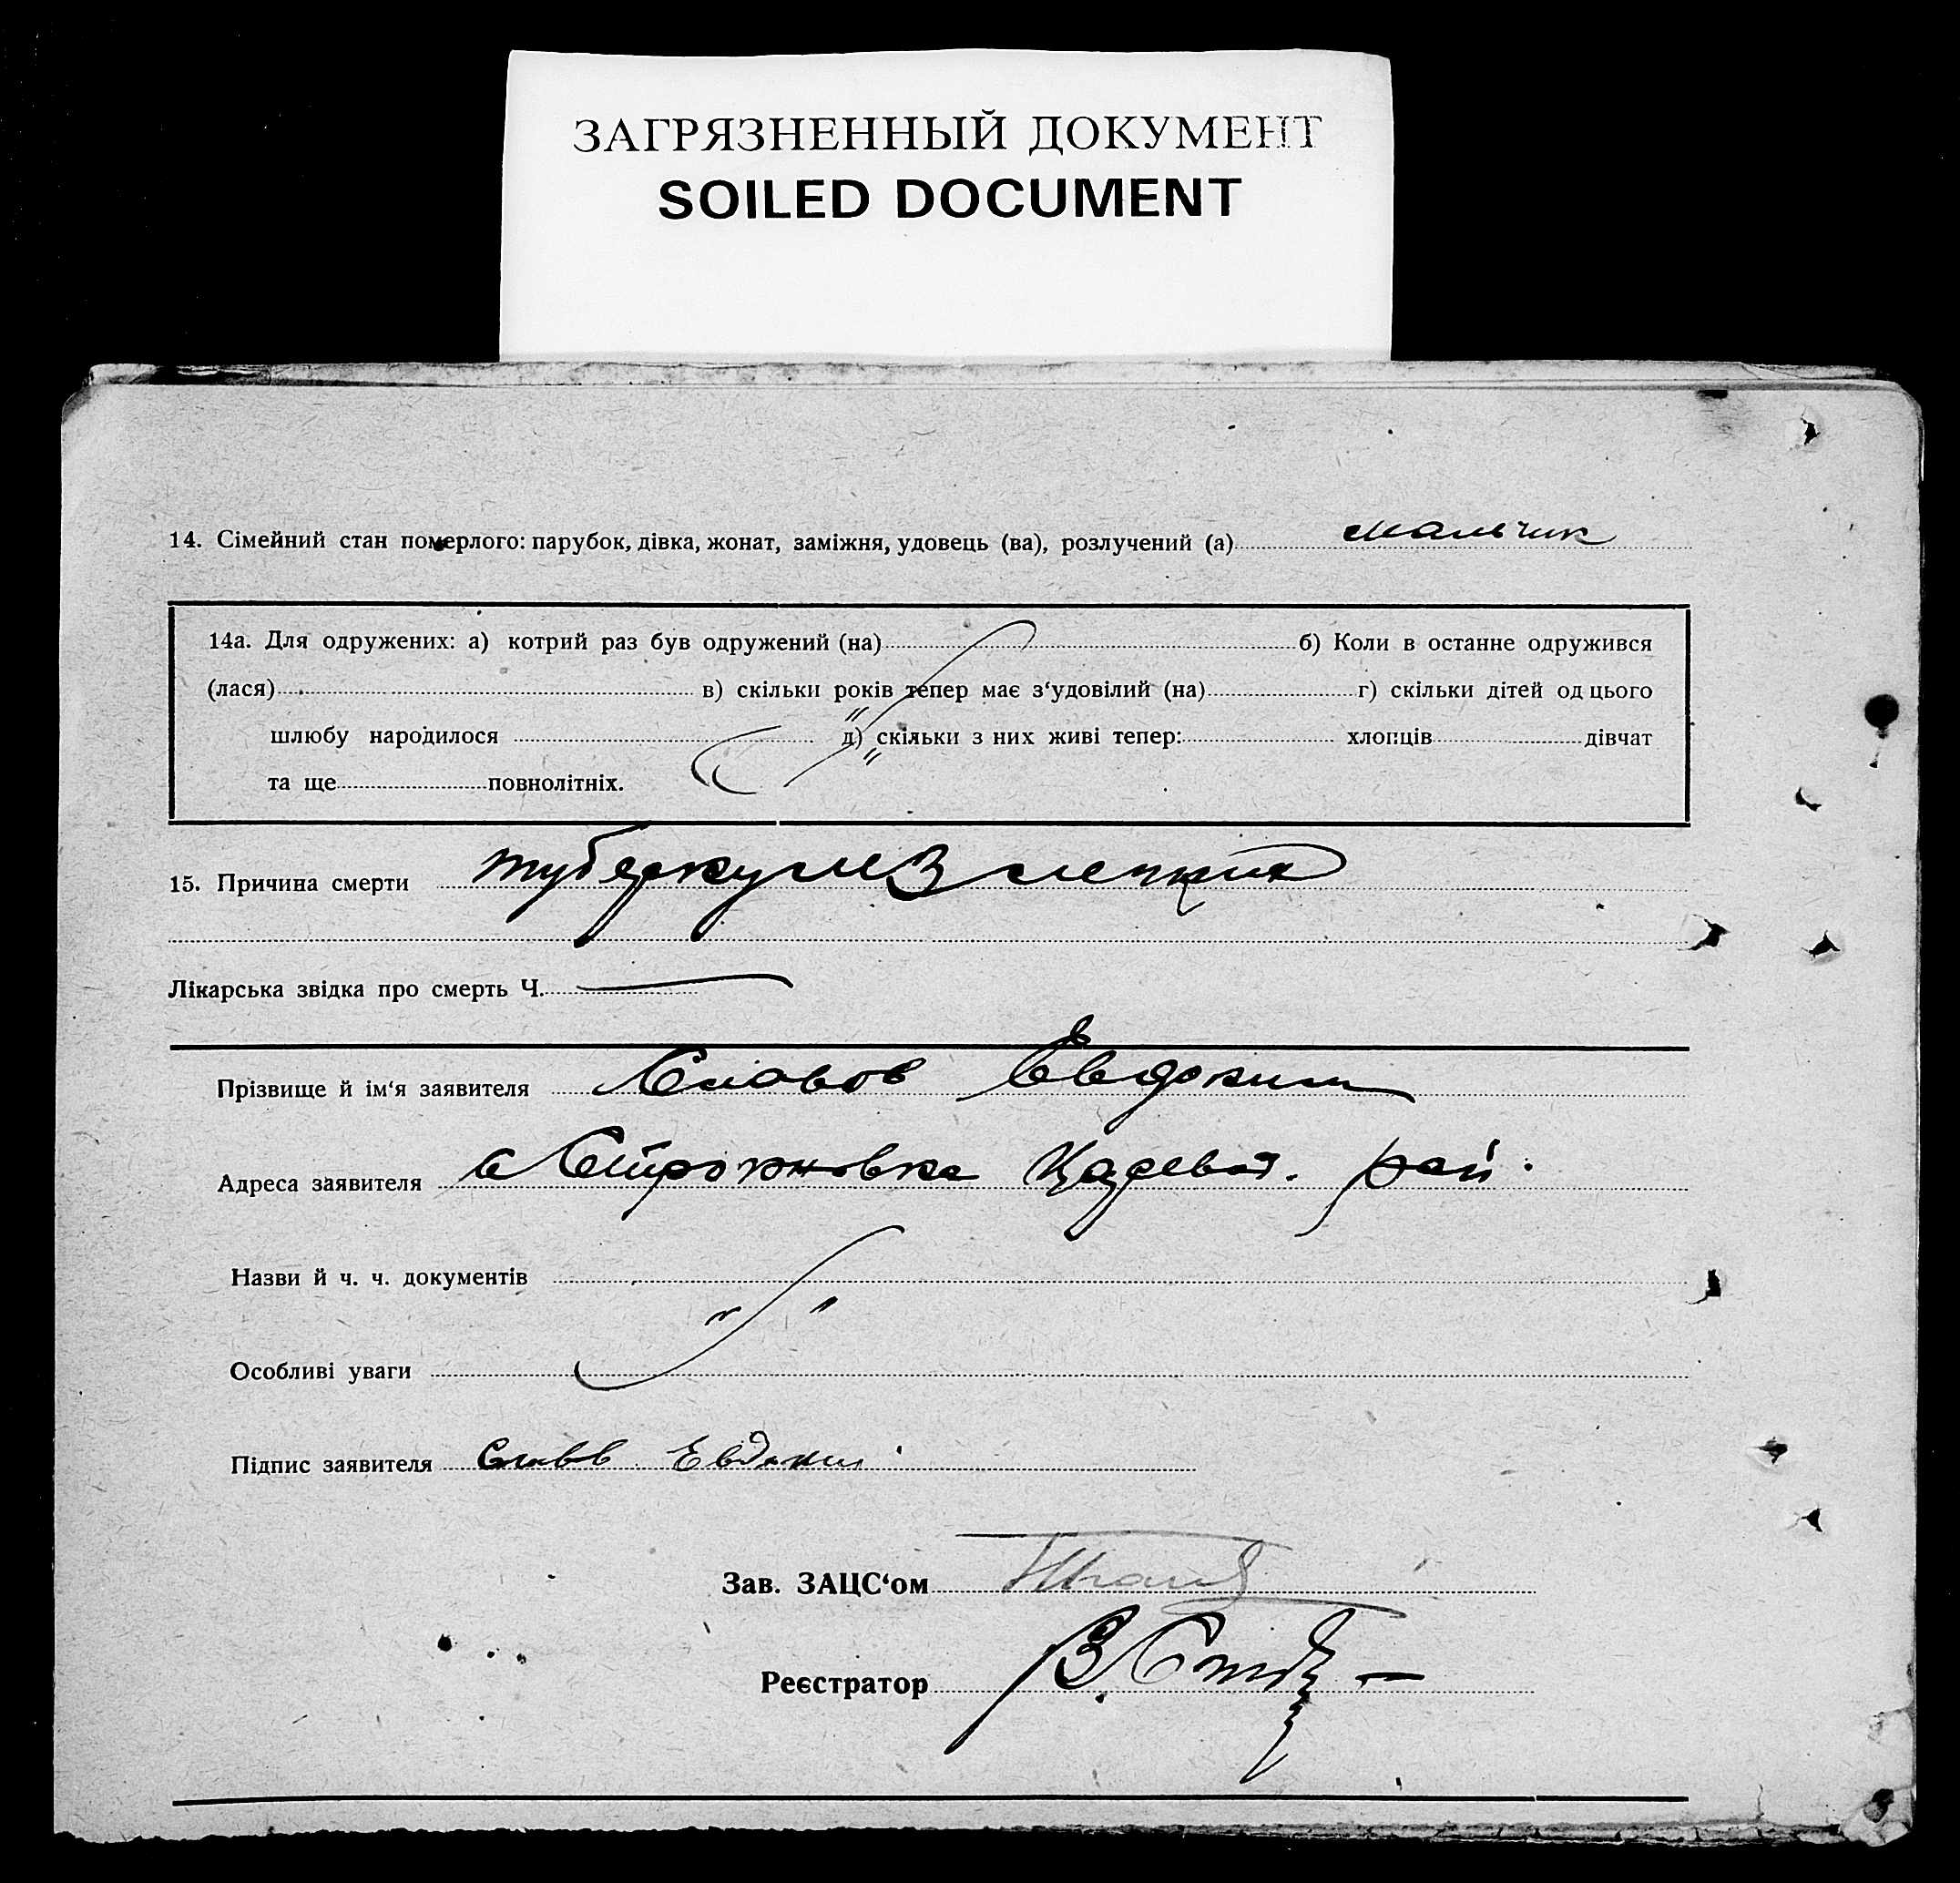 ЗАГРЯЗНЕННЫЙ ДОКУМЕНТ
SOILED DOCUMENT
14. Сімейний стан померлого: парубок, дівка, жонат, заміжня, удовець (ва), розлучений (а) мальчик
14а. Для одружених: а) котрий раз був одружений (на) б) Коли в останне одружився
(лася) в) скільки років тепер має з‘удовілий (на) г) скільки дітей од цього
шлюбу народилося д) скільки з них живі тепер: хлопців дівчат
та ще повнолітніх.
15. Причина смерти туберкулез легких
Лікарська звідка про смерть Ч.
Прізвище й ім‘я заявителя Славов Евдоким
Адреса заявителя с Строжновка рай.
Назви й ч. ч. документів
Особливі уваги
Підпис заявителя Евдоким
Зав. ЗАЦС‘ом
Реєстратор В.